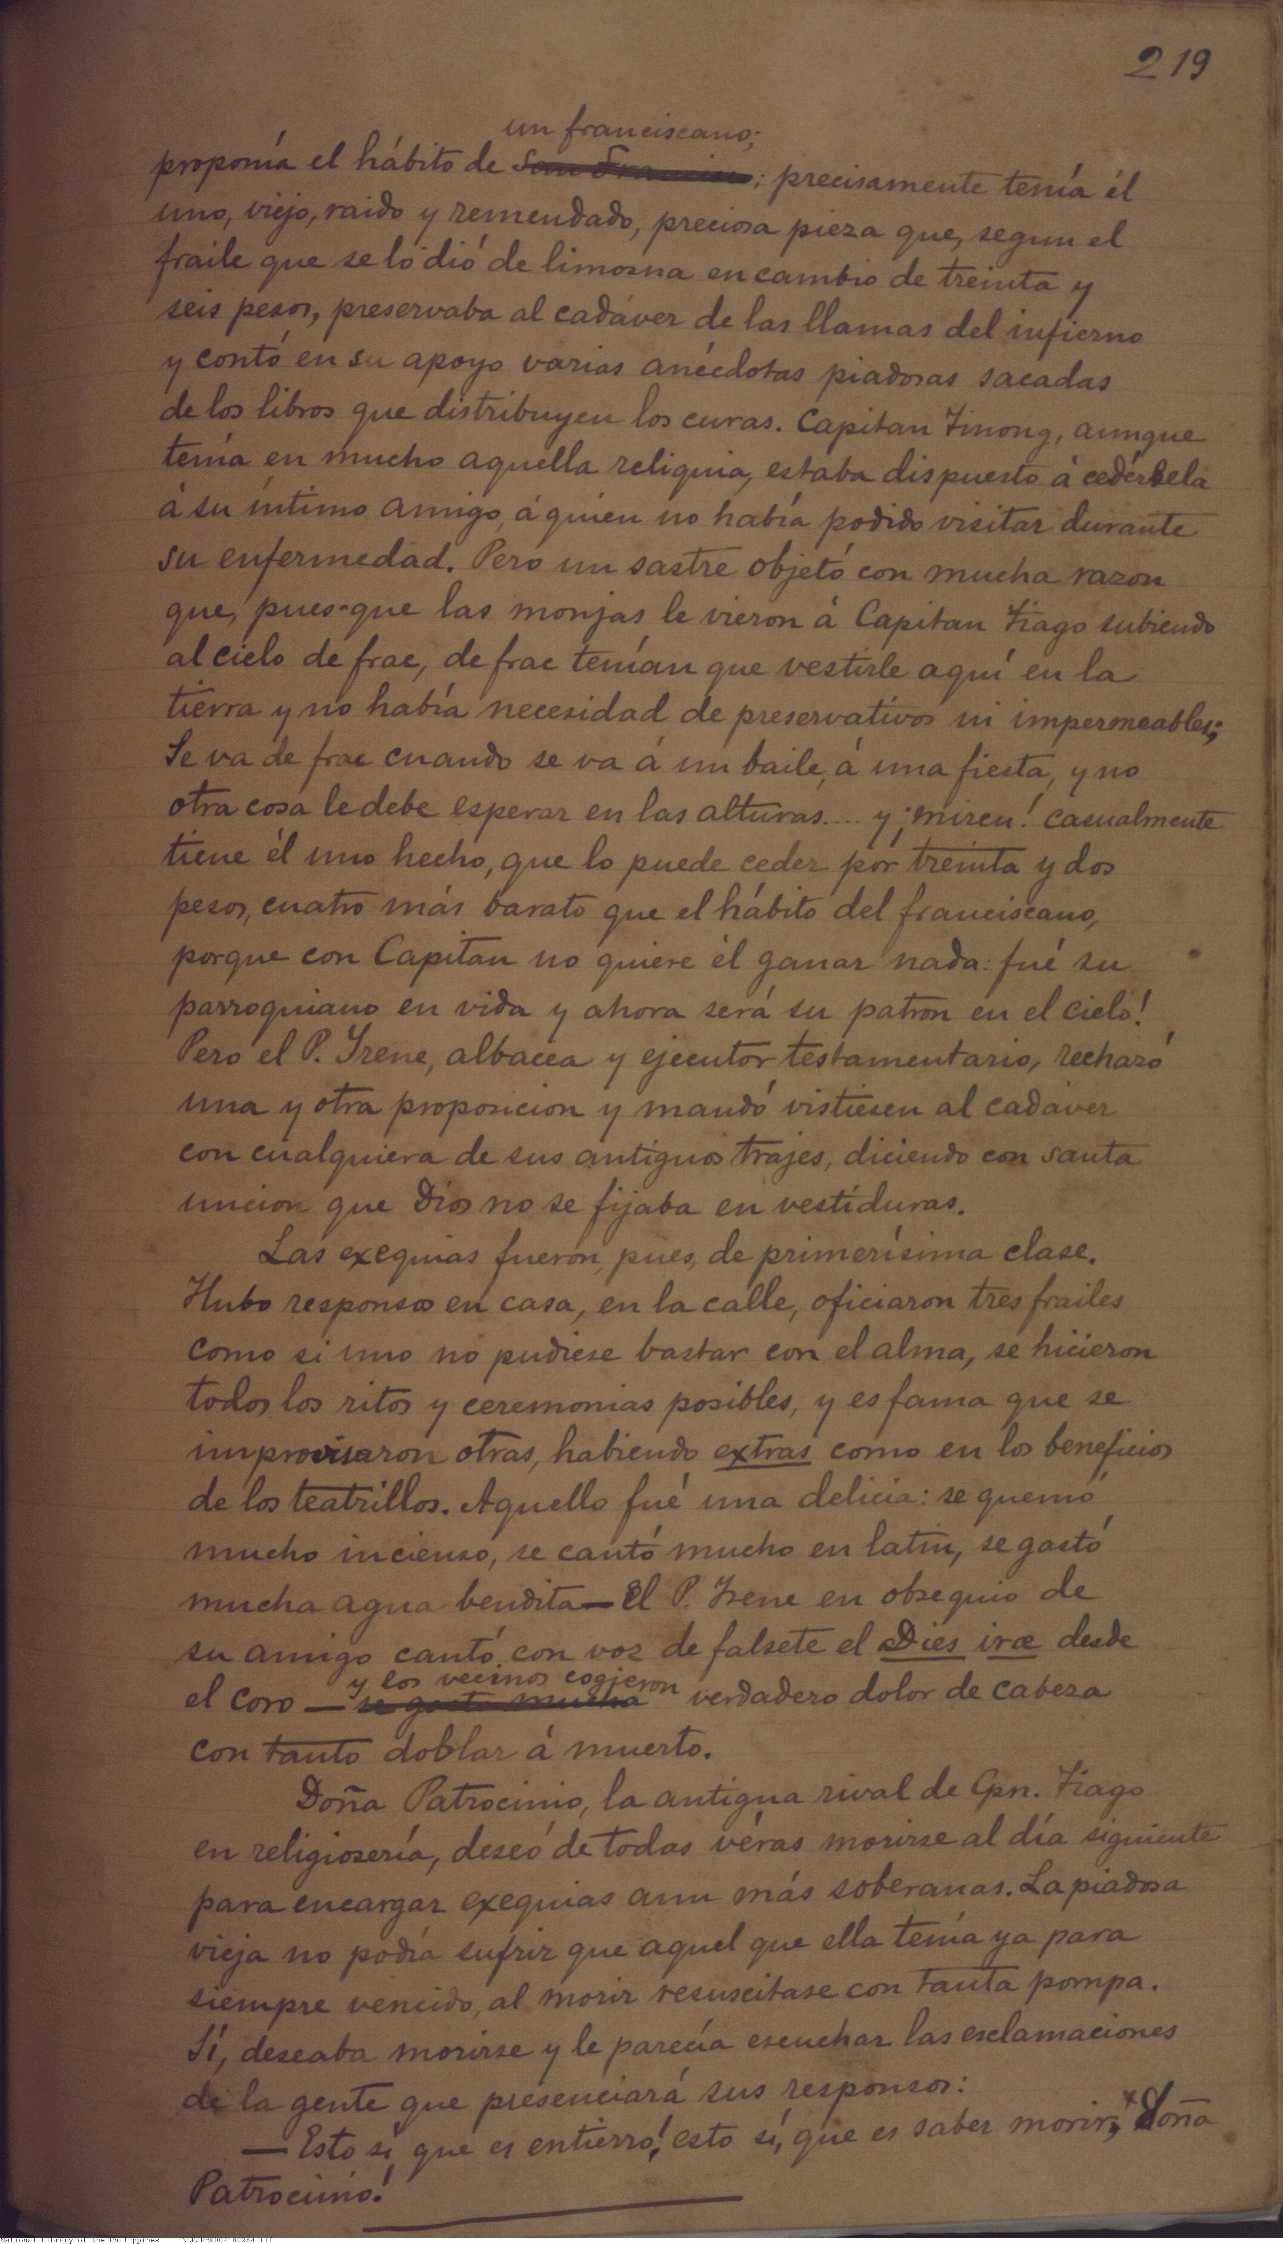 219
un franciscano;
proponía el hábito de San Francisco; precisamente tenía él
uno, viejo, raido y remendado, preciosa pieza que, segun el
fraile que se lo dió de limosna en cambio de treinta y
seis pesos, preservaba al cadáver de las llamas del infierno
y contó en su apoyo varias anécdotas piadosas sacadas
de los libros que distribuyen los curas. Capitan Tinong, aunque
tenía en mucho aquella reliquia, estaba dispuesto á cedérsela
á su íntimo amigo, á quien no había podido visitar durante
su enfermedad. Pero un sastre objetó con mucha razon
que, pues que las monjas le vieron á Capitan Tiago subiendo
al cielo de frac, de frac tenían que vestirle aquí en la
tierra y no había necesidad de preservativos ni impermeables;
Se va de frac cuando se va á un baile, á una fiesta, y no
otra cosa le debe esperar en las alturas.... y ¡miren! casualmente
tiene él uno hecho, que lo puede ceder por treinta y dos
pesos, cuatro más barato que el hábito del franciscano,
porque con Capitan no quiere él ganar nada: fué su
parroquiano en vida y ahora será su patron en el cielo!
Pero el P. Irene, albacea y ejecutor testamentario, rechazó
una y otra proposicion y mandó vistiesen al cadáver
con cualquiera de sus antiguos trajes, diciendo con santa
uncion que Dios no se fijaba en vestiduras.
Las exequias fueron, pues, de primerísima clase.
Hubo responsos en casa, en la calle, oficiaron tres frailes
como si uno no pudiese bastar con el alma, se hicieron
todos los ritos y ceremonias posibles, y es fama que se
improvisaron otras, habiendo extras como en los beneficios
de los teatrillos. Aquello fué una delicia: se quemó
mucho incienso, se cantó mucho en latin, se gastó
mucha agua bendita—El P. Irene en obsequio de
su amigo cantó con voz de falsete el Dies iræ desde
y los vecinos cogieron
el coro — se gastó mucha verdadero dolor de cabeza
con tanto doblar á muerto.
Doña Patrocinio, la antigua rival de Cpn. Tiago
en religiosería, deseó de todas véras morirse al día siguiente
para encargar exequias aun más soberanas. La piadosa
vieja no podía sufrir que aquel que ella tenía ya para
siempre vencido, al morir resuscitase con tanta pompa.
Sí, deseaba morirse y le parecía escuchar las esclamaciones
de la gente que presenciará sus responsos:
— Esto sí que es entierro! esto sí, que es saber morir, Doña
Patrocinio!
National Library of the Philippines